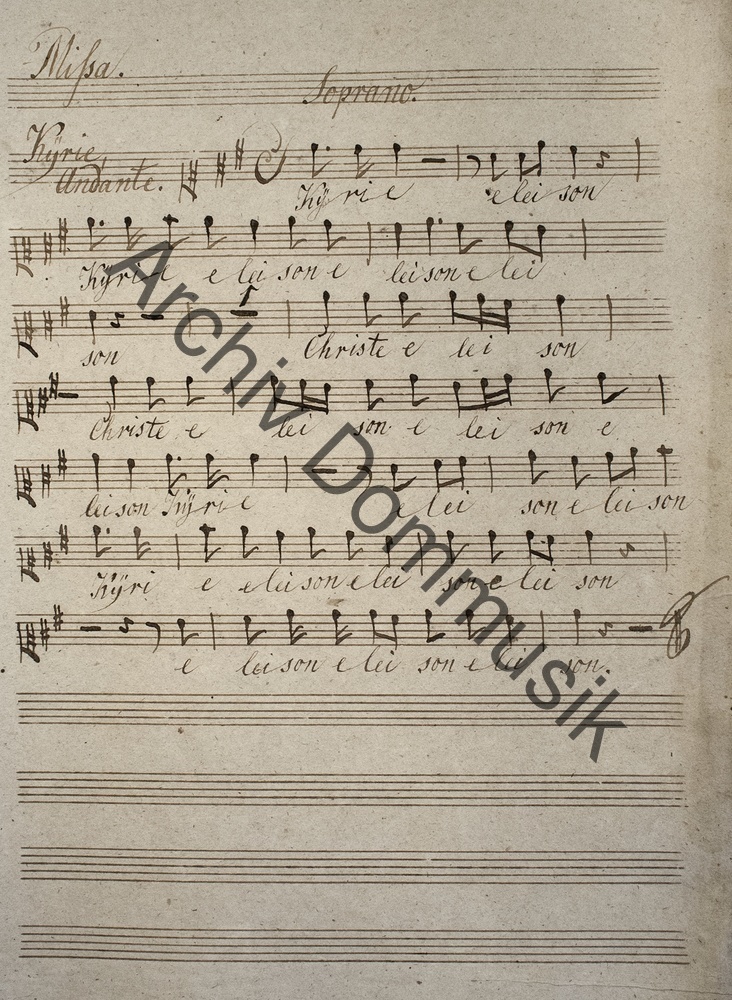 Missa.
Soprano.
Kÿrie,
Andante.
Kÿ ri e e lei son
Kÿri e e lei son e lei son e lei
son Christe e lei son
Christe e lei son e lei son e
lei son Kÿri e e lei son e lei son
Kÿri e e lei son e lei son e lei son
e lei son e lei son e lei son.
Archiv Dommusik